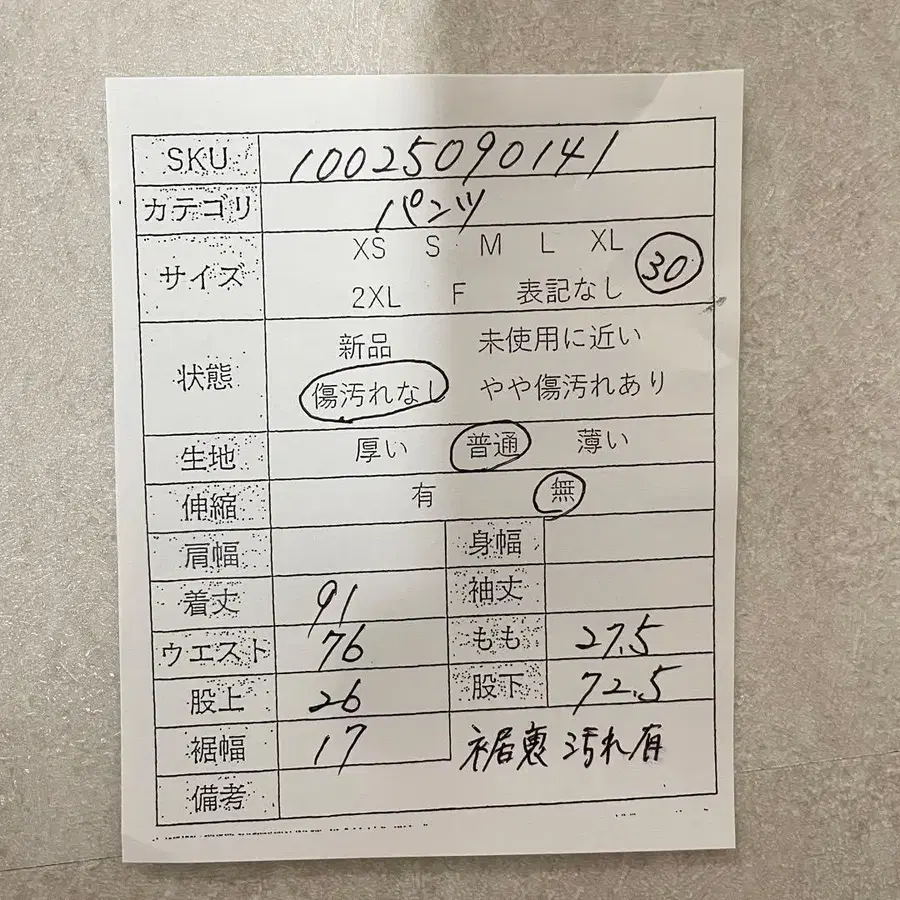 SKU 10025090141
カテゴリ パンツ
サイズ XS S M L XL 30
2XL F 表記なし
状態 新品 未使用に近い
傷汚れなし やや傷汚れあり
生地 厚い 普通 薄い
伸縮 有 無
肩幅 身幅
着丈 91 袖丈
ウエスト 76 もも 27.5
股上 26 股下 72.5
裾幅 17 裾裏 汚れ有
備考